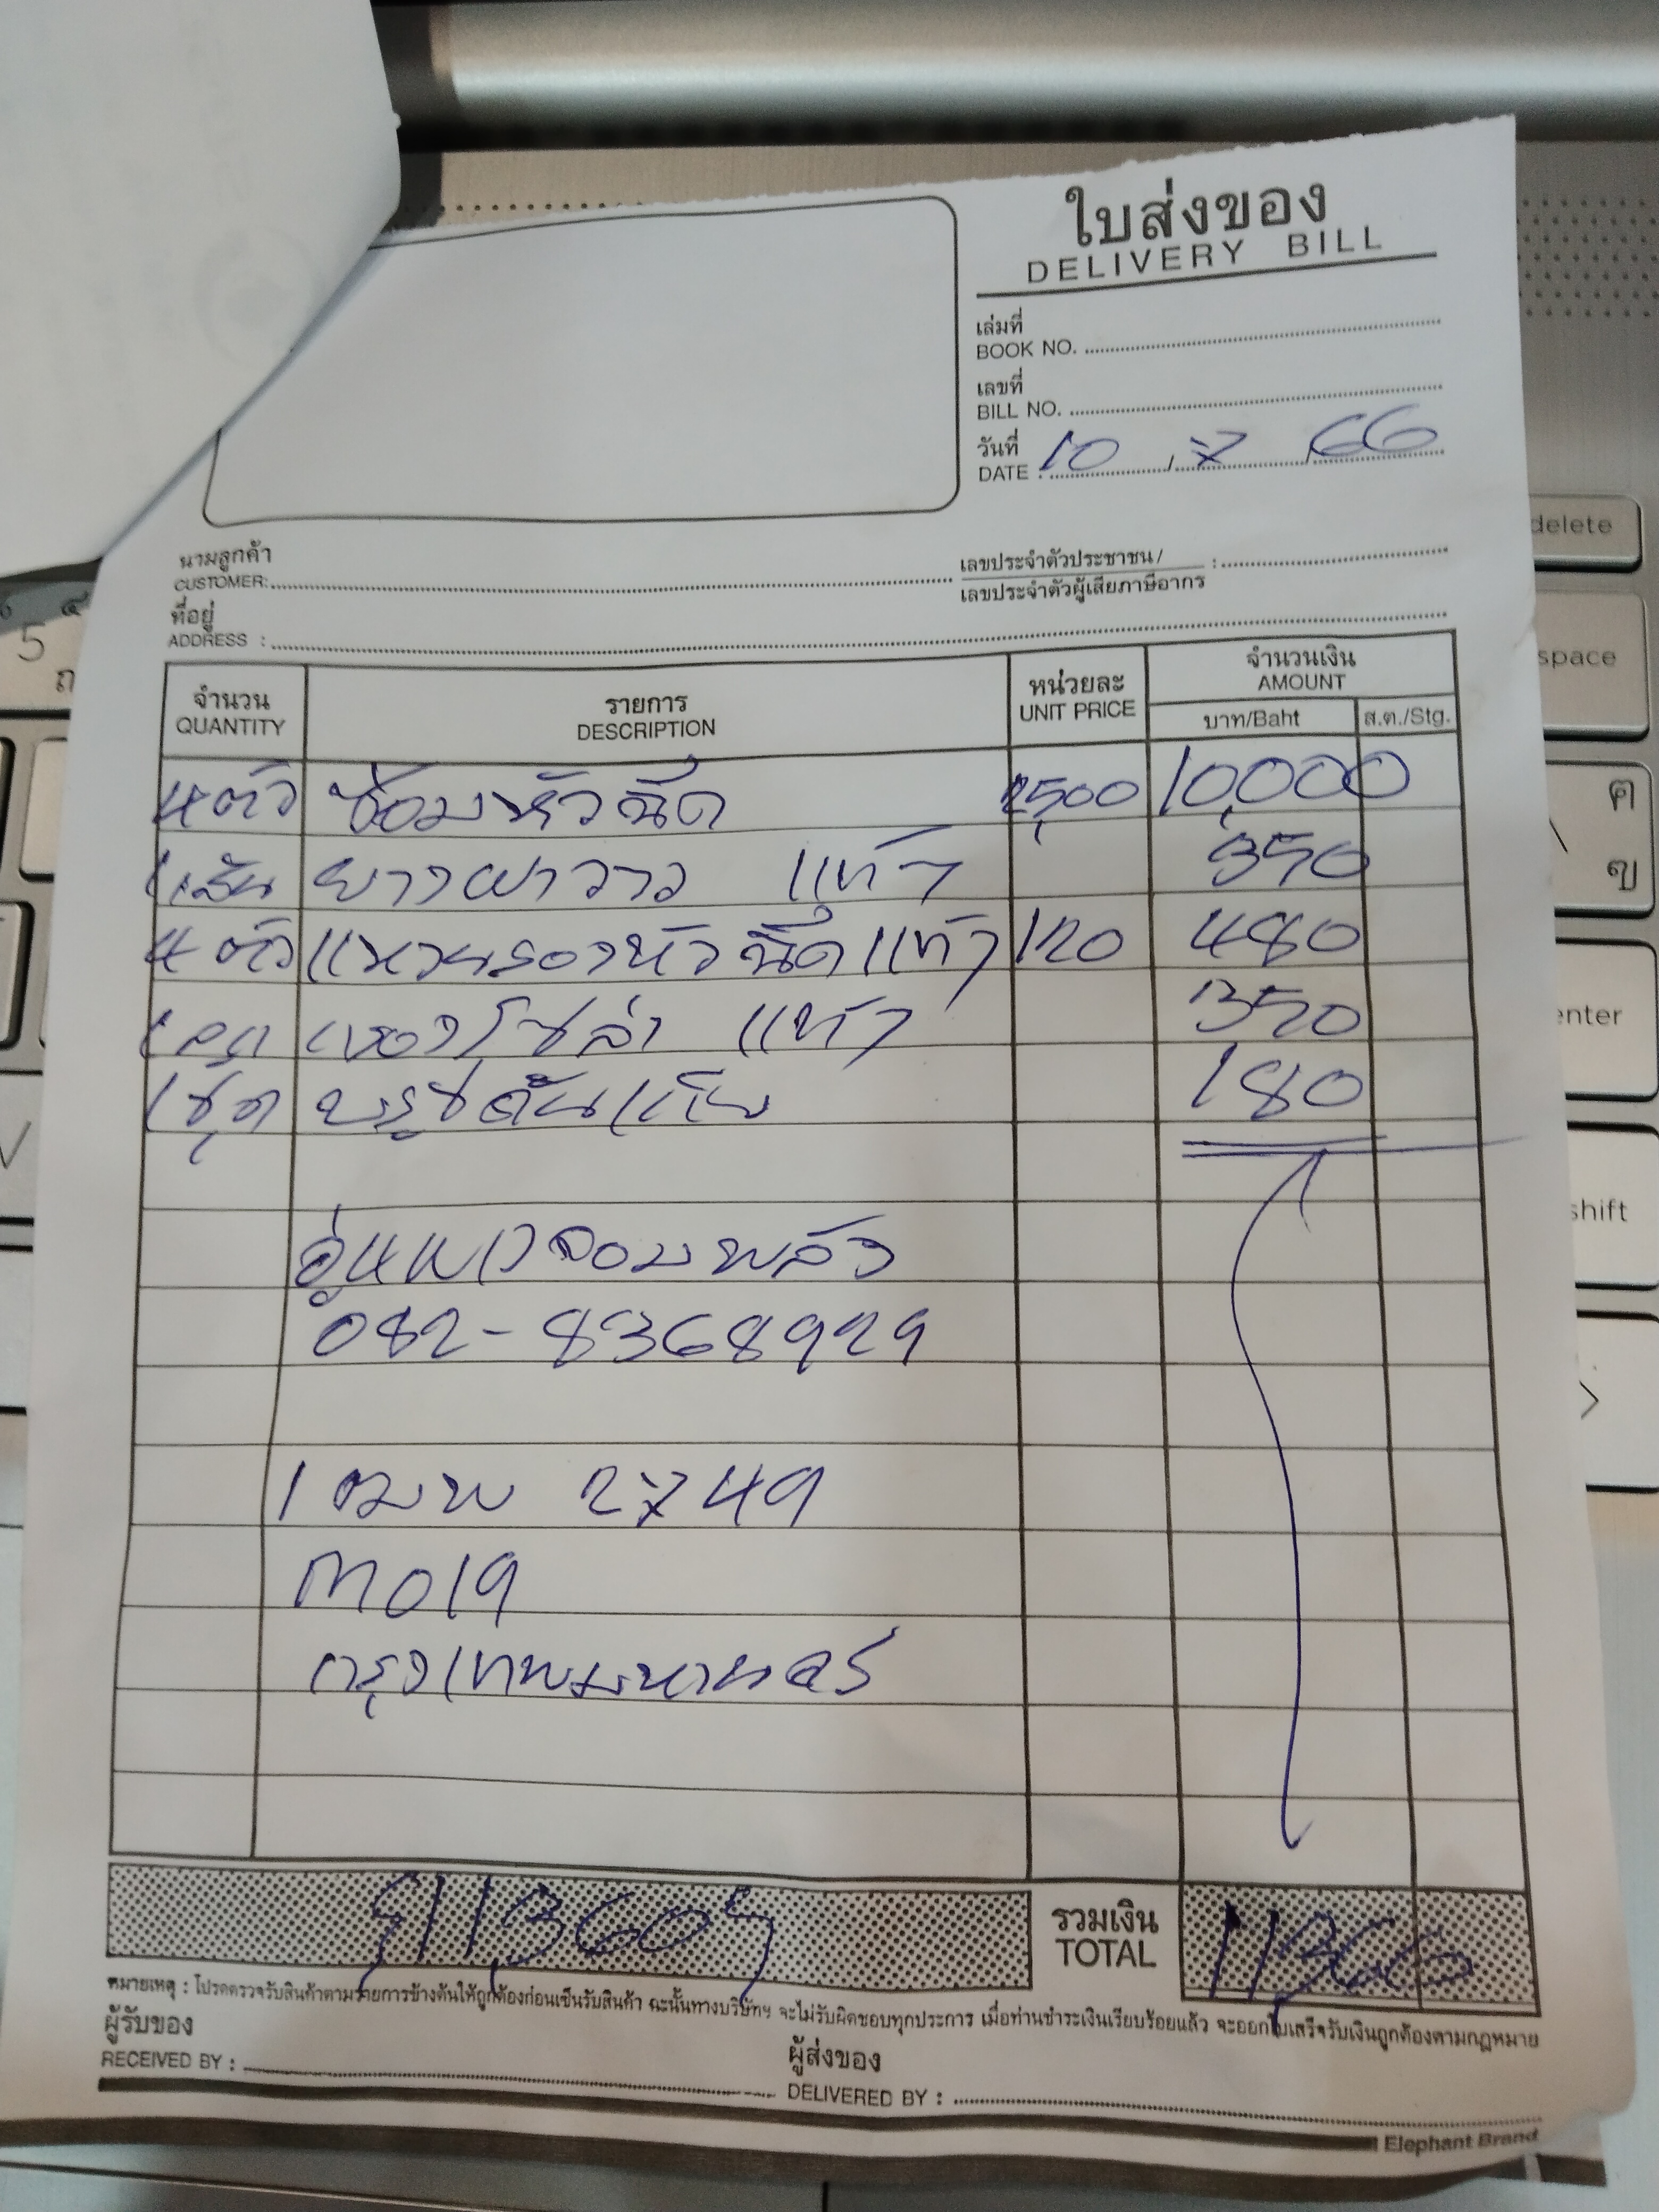 ใบส่งของ
DELIVERY BILL
เล่มที่
BOOK NO.
เลขที่
BILL NO.
วันที่
DATE : 10 / 7 / 66
นามลูกค้า
CUSTOMER:
เลขประจำตัวประชาชน / :
เลขประจำตัวผู้เสียภาษีอากร
ที่อยู่
ADDRESS :
จำนวน รายการ หน่วยละ จำนวนเงิน
QUANTITY DESCRIPTION UNIT PRICE AMOUNT
บาท/Baht ส.ต./Stg.
4 ตัว ซ่อมหัวฉีด 2,500 10,000
1 เส้น ยางฝาวาว แท้ๆ 350
4 ตัว แหวนรองหัวฉีดแท้ๆ 120 480
1 ลูก กรองโซล่า แท้ๆ 350
1 ชุด 180
อู่
082-8368929
1 ฒพ 2749
M019
กรุงเทพมหานคร
11,360
รวมเงิน
TOTAL 11,360
หมายเหตุ : โปรดตรวจรับสินค้าตามรายการข้างต้นให้ถูกต้องก่อนเซ็นรับสินค้า ฉะนั้นทางบริษัทฯ จะไม่รับผิดชอบทุกประการ เมื่อท่านชำระเงินเรียบร้อยแล้ว จะออกใบเสร็จรับเงินถูกต้องตามกฎหมาย
ผู้รับของ
RECEIVED BY :
ผู้ส่งของ
DELIVERED BY :
Elephant Brand
delete
space
enter
shift
5
ถ
ฅ
ฃ